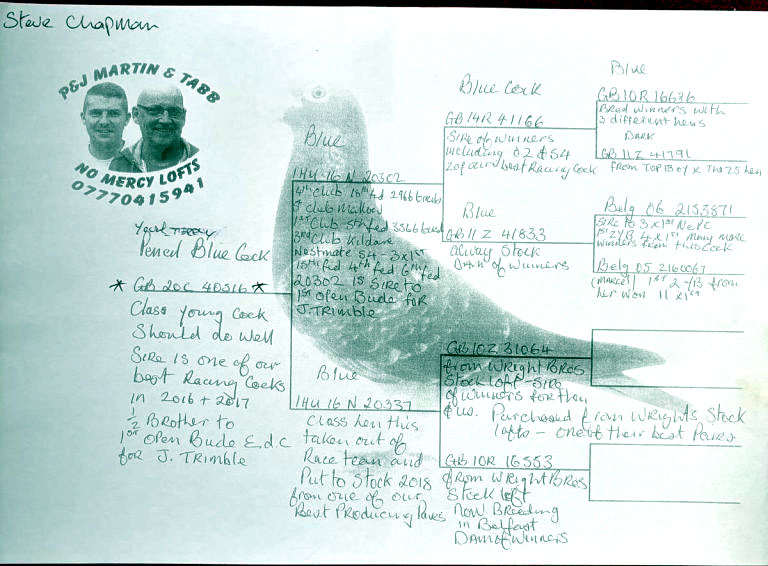 Steve Chapman
P&J MARTIN & TABB
NO MERCY LOFTS
07770415941
Pencil Blue Cock
* GB 20C 40516 *
Class young Cock
Should do well
Sire is one of our
best Racing Cocks
in 2016 + 2017
1/2 Brother to
1st Open Bude E.d.c
for J. Trimble
Blue
IHU 16 N 20302
4th Club 18th fed 2966 birds
Club Mallow
1st Club 5th fed 3566 birds
3rd Club Kildare
Nestmate 54 - 3x1st
15th fed 4th fed 6th fed
20302 is Sire to
1st open Bude for
J. Trimble
Blue
IHU 16 N 20337
Class hen this
taken out of
Race team and
Put to Stock 2018
from one of our
Best Producing Pairs
Blue Cock
GB 14R 41166
Sire of winners
including 02 & 54
2 of our best Racing Cocks
Blue
GB 11 Z 41833
Olivay Stock
Dam of winners
GB 10Z 31064
from WRight BROS
Stock loft - Sire
of winners for them
& us. Purchased from WRights Stock
lofts - one of their best Pairs
GB 10R 16553
from WRight BROS
Stock loft
Now Breeding
in Belfast
Dam of winners
Blue
GB 10R 16636
Bred winners with
3 different hens
DARK
GB 11 Z 41791
from TOP 13 of x The 25 hen
Belg 06 2153871
Sire to 3 x 1st NCPC
1st 2YB 4 x 1st Many more
winners from this Cock
Belg 05 2160067
(Marcel) 1st 2 YB from
her won 11 x 1st